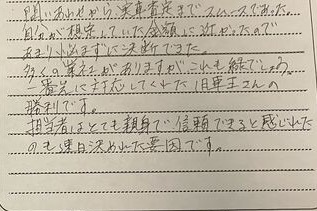 問い合わせから実車査定までスムーズであった。
自分が想定していた金額に近かったので
あまり悩まずに決断できた。
多くの業社がありますがこれも縁でしょう。
一番先に対応してくれた旧車王さんの
勝利です。
担当者はとても親身で信頼できると感じれた
のも速日決められた要因です。